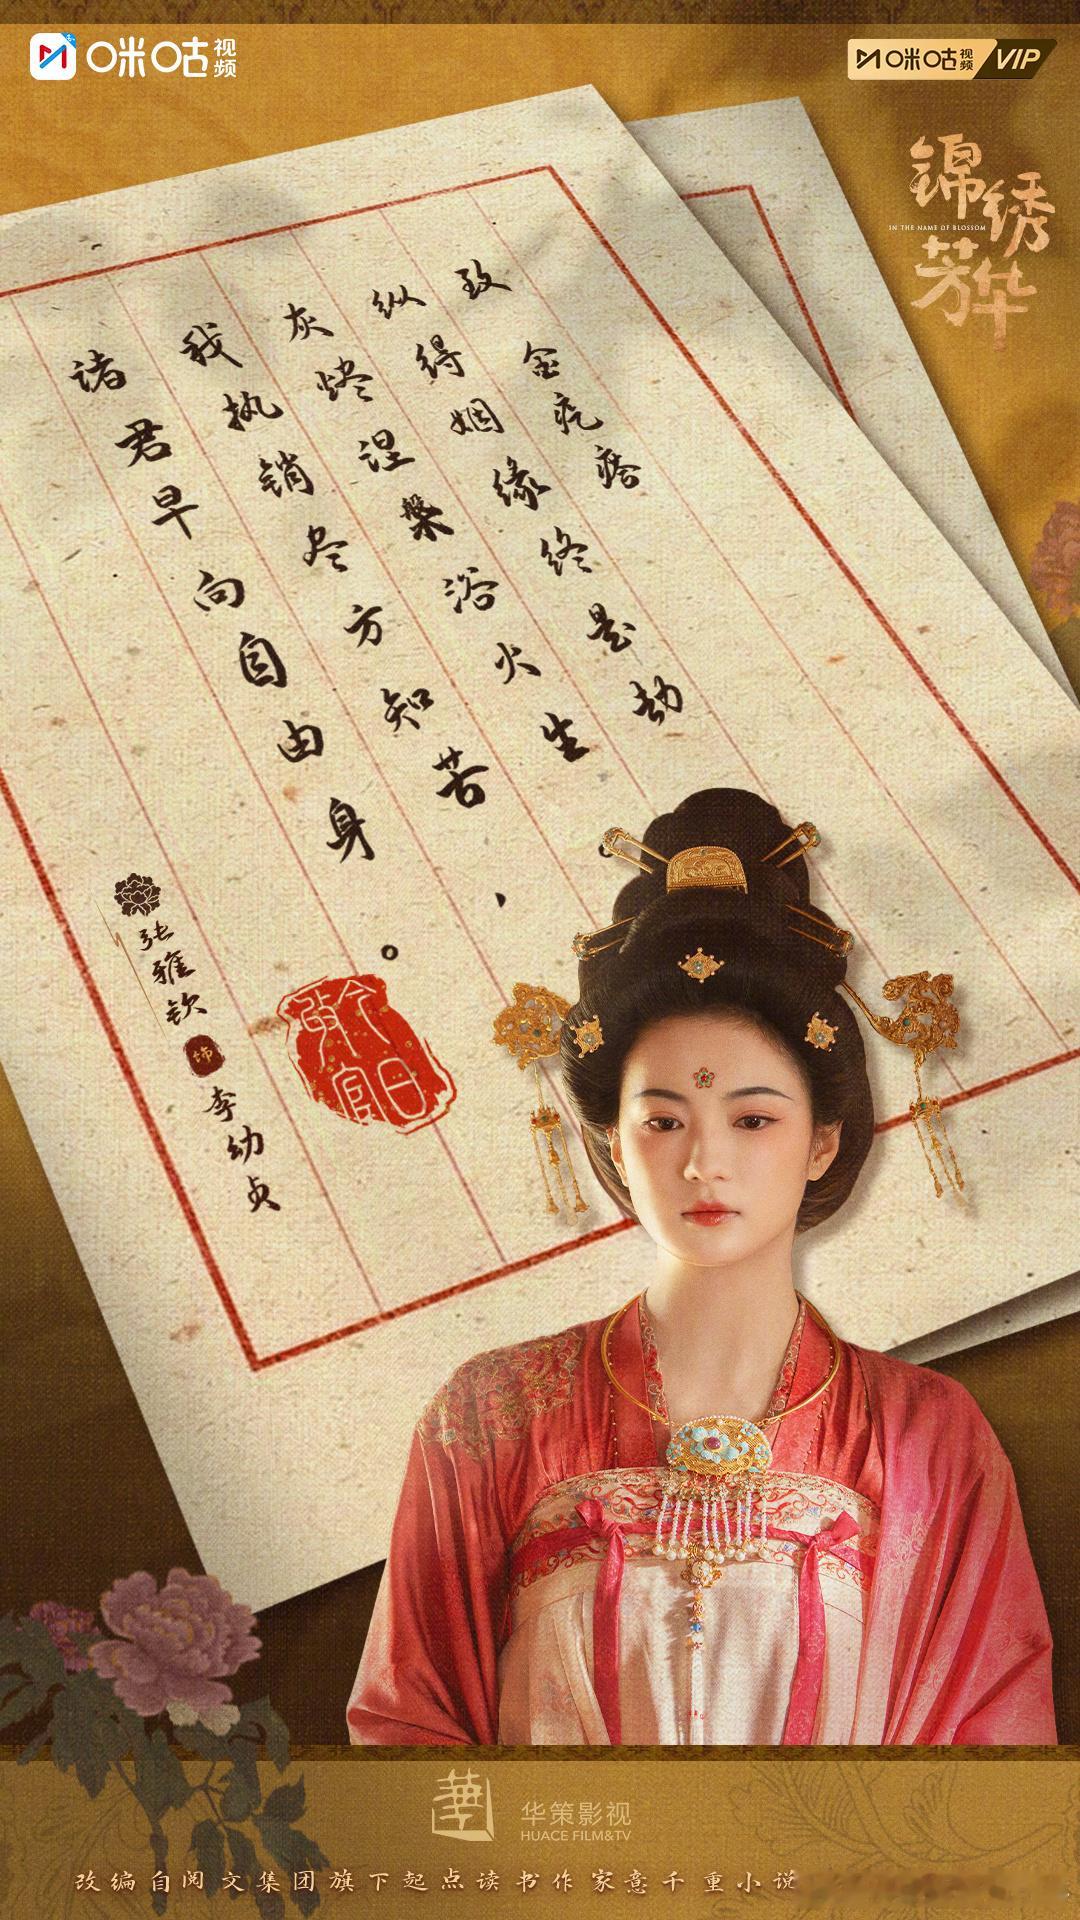 咪咕视频
咪咕视频 VIP
锦绣芳华
IN THE NAME OF BLOSSOM
致金疙瘩
纵得姻缘终是劫
灰烬涅槃浴火生。
我执销尽方知苦、
诸君早向自由身。
今日
张雅钦 饰 李幼贞
華
华策影视
HUACE FILM&TV
改编自阅文集团旗下起点读书作家意千重小说